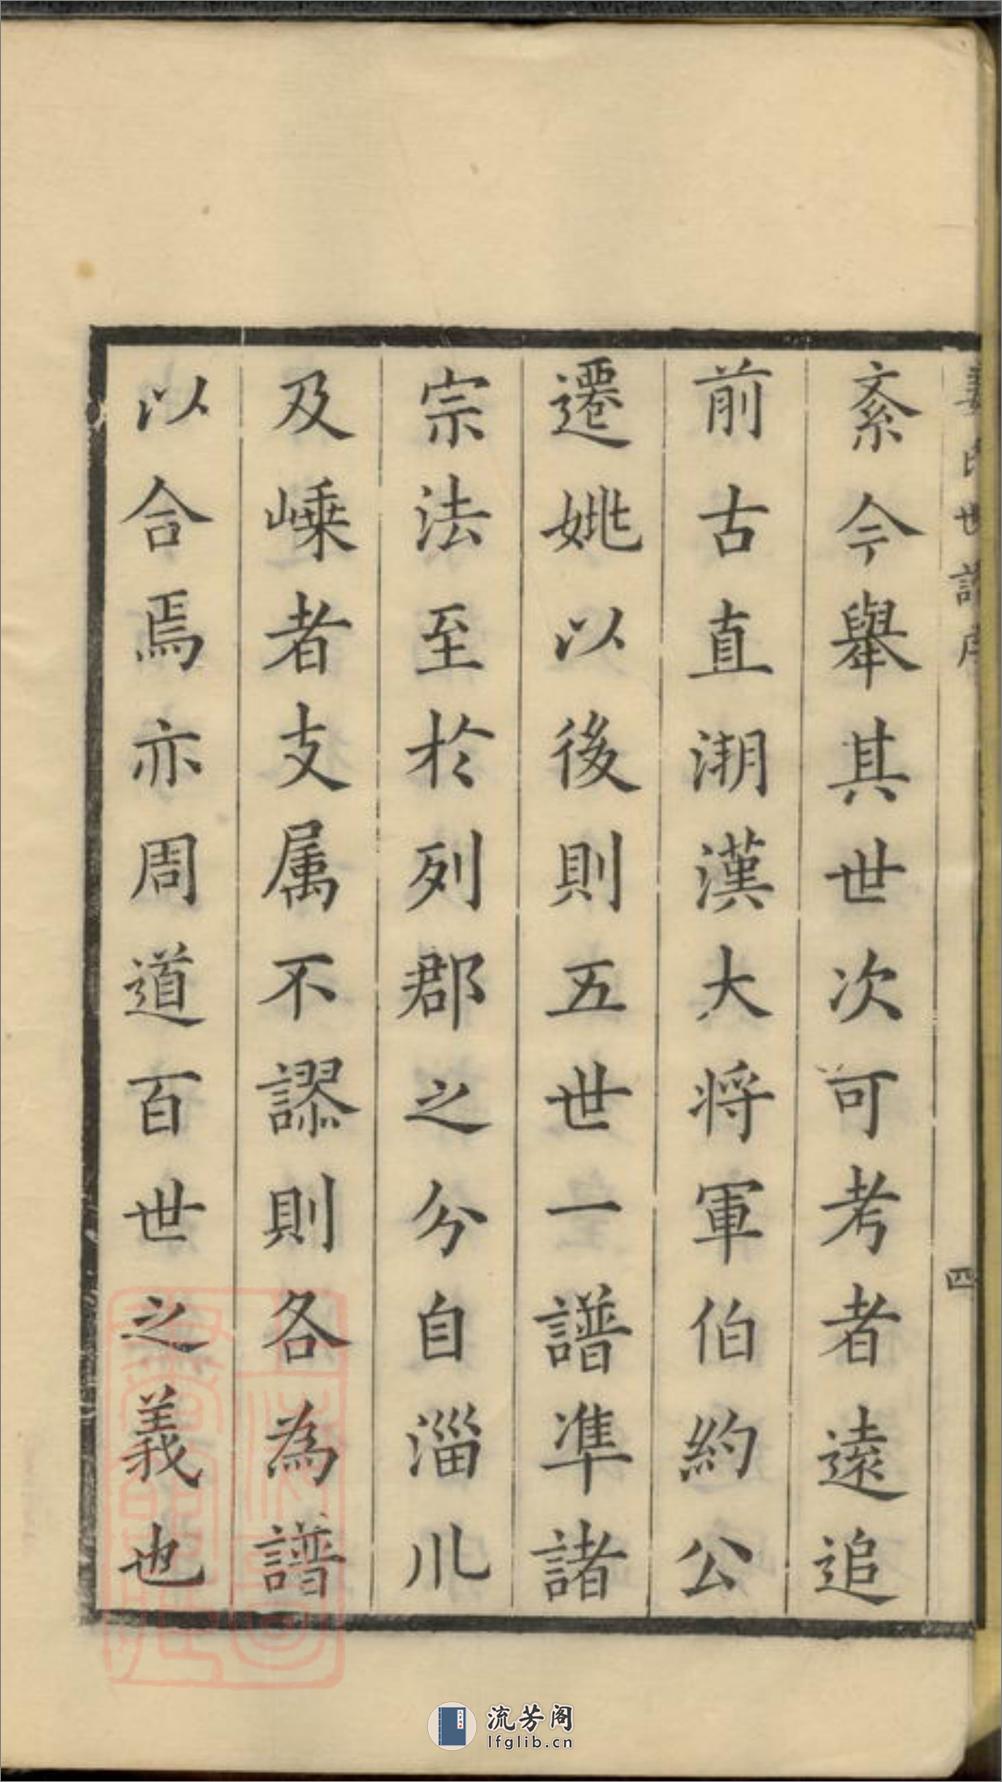 姜氏世譜序
四
紊今舉其世次可考者遠追
前古直溯漢大将軍伯約公
遷姚以後則五世一譜準諸
宗法至於列郡之分自淄川
及嵊者支属不謬則各為譜
以合焉亦周道百世之義也
流芳阁
lfglib.cn